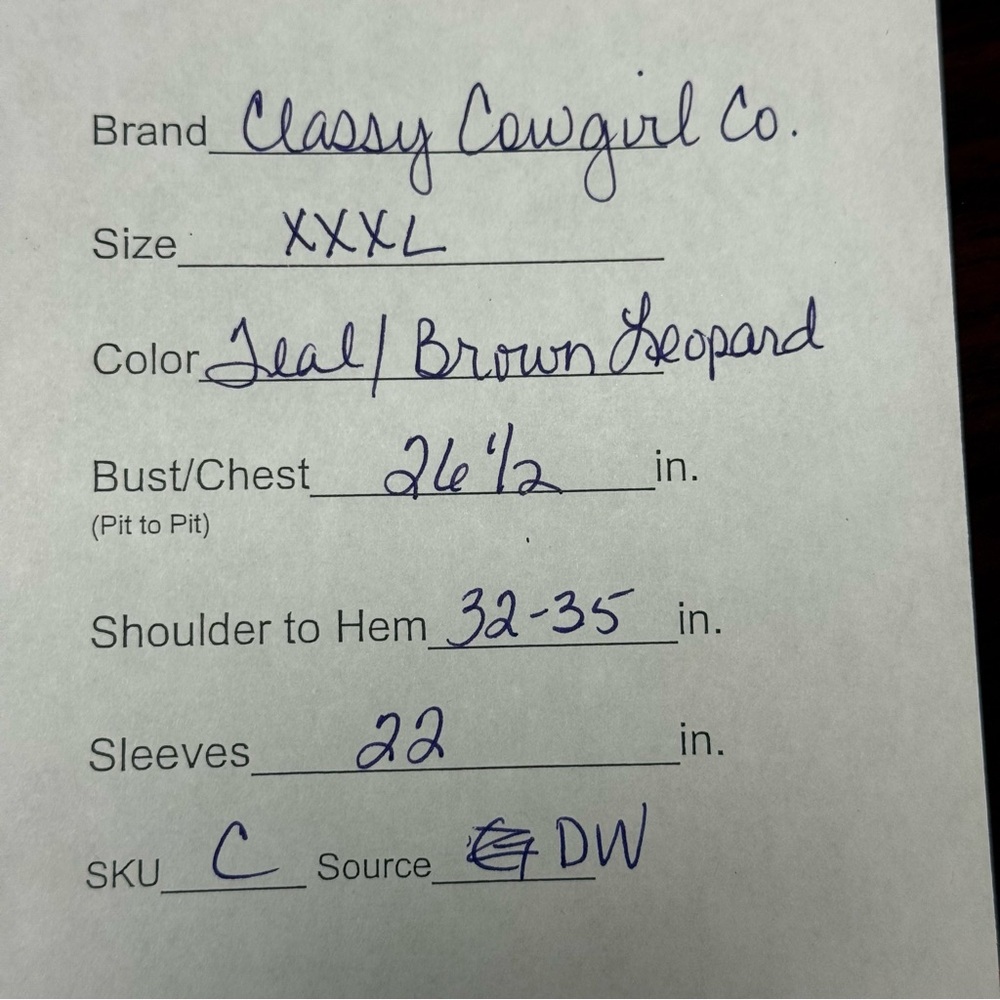 Brand Classy Cowgirl Co.
Size XXXL
Color Teal/Brown Leopard
Bust/Chest 26 1/2 in.
(Pit to Pit)
Shoulder to Hem 32-35 in.
Sleeves 22 in.
SKU C Source DW